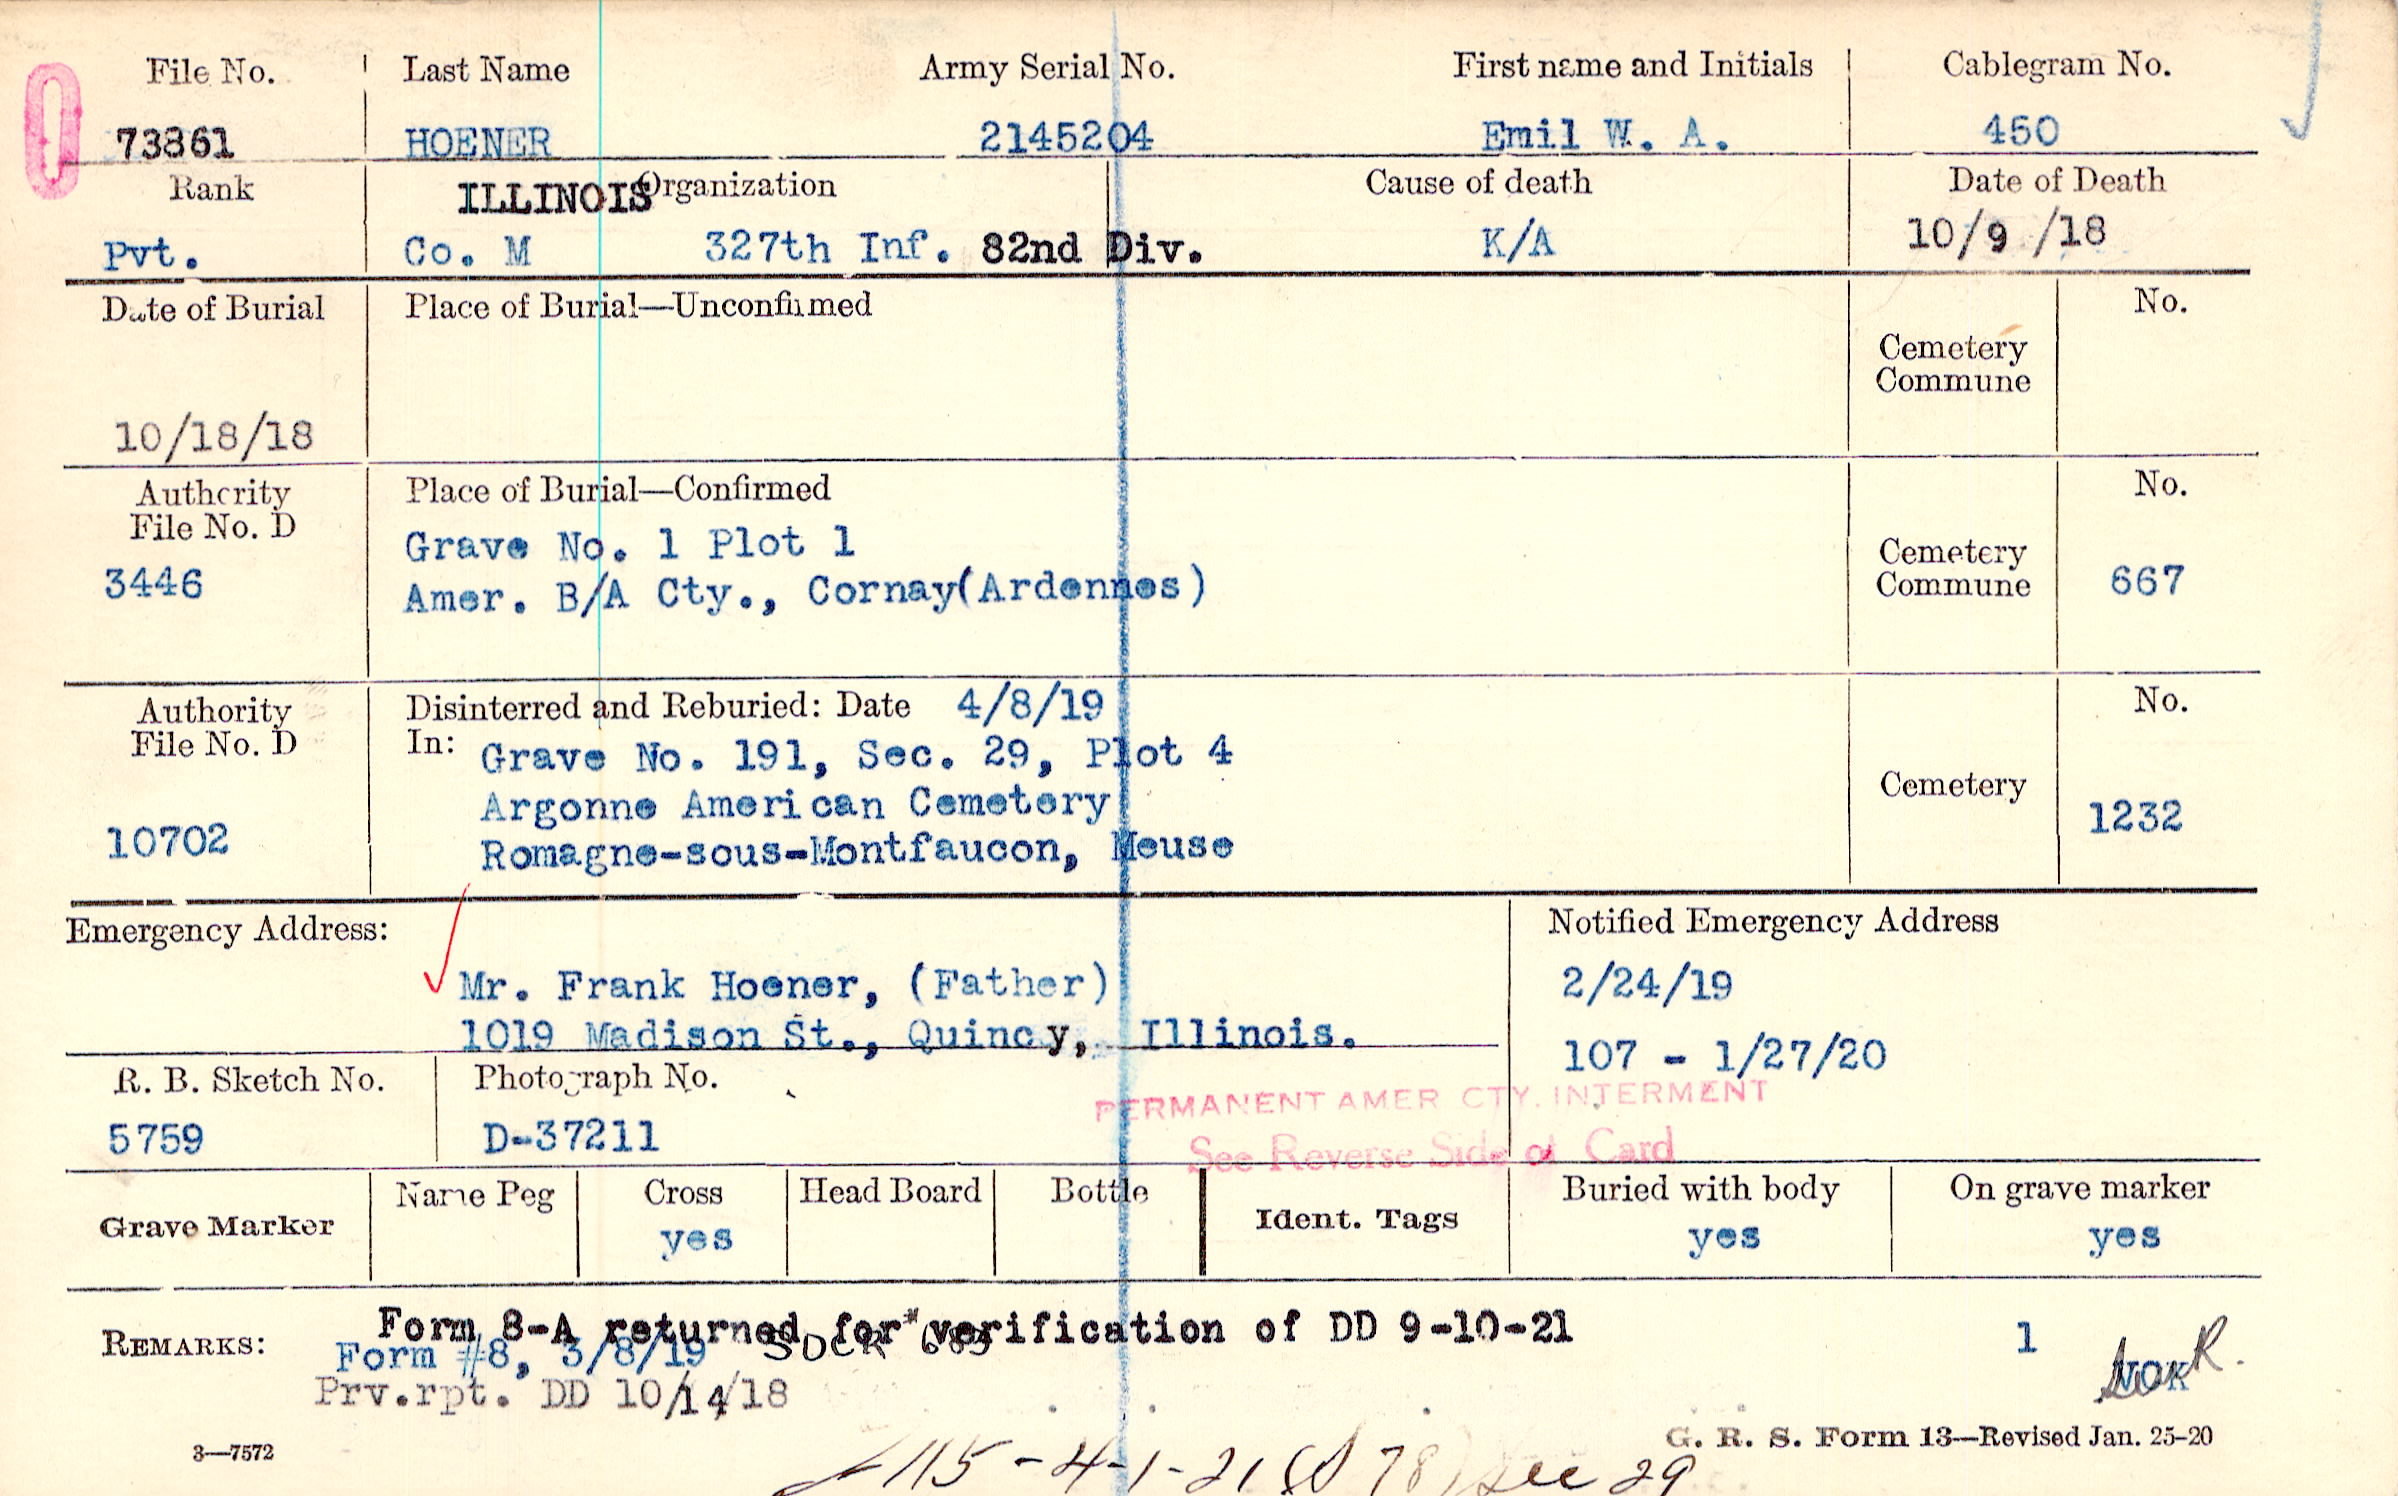 File No. Last Name Army Serial No. First name and Initials Cablegram No.
73861 HOENER 2145204 Emil W. A. 450
Rank ILLINOIS Organization Cause of death Date of Death
Pvt. Co. M 327th Inf. 82nd Div. K/A 10/9 /18
Date of Burial Place of Burial—Unconfirmed No.
Cemetery
Commune
10/18/18
Authority Place of Burial—Confirmed No.
File No. D
Grave No. 1 Plot 1
3446 Amer. B/A Cty., Cornay(Ardennes) Cemetery
Commune 667
Authority Disinterred and Reburied: Date 4/8/19 No.
File No. D In: Grave No. 191, Sec. 29, Plot 4
Argonne American Cemetery Cemetery
10702 Romagne-sous-Montfaucon, Meuse 1232
Emergency Address: Notified Emergency Address
Mr. Frank Hoener, (Father) 2/24/19
1019 Madison St., Quincy, Illinois.
107 - 1/27/20
R. B. Sketch No. Photograph No.
PERMANENT AMER CTY. INTERMENT
5759 D-37211 See Reverse Side of Card
Grave Marker Name Peg Cross Head Board Bottle Ident. Tags Buried with body On grave marker
yes yes yes
REMARKS: Form 8-A returned for verification of DD 9-10-21 1
Form #8, 3/8/19
Prv.rpt. DD 10/14/18 NOK
3—7572 G. R. S. Form 13—Revised Jan. 25-20
115 - 4-1-21 See 29